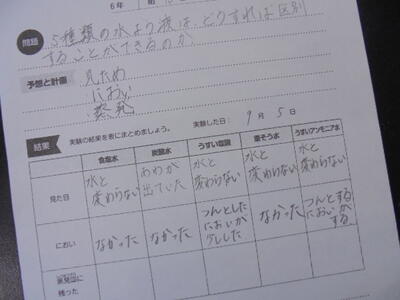 6年
問題
5種類の水よう液は、どうすれば区別
することができるのか
予想と計画
見ため
におい
蒸発
結果
実験の結果を表にまとめましょう。
実験した日： 9月 5日
食塩水 炭酸水 うすい塩酸 重そう水 うすいアンモニア水
見た目
水と変わらない
あわが出ていた
水と変わらない
水と変わらない
水と変わらない
におい
なかった
なかった
つんとした
においが
なかった
つんとする
においが
する
蒸発皿に
残った